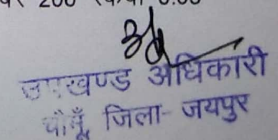 200
उपखण्ड अधिकारी
चौमूँ, जिला- जयपुर